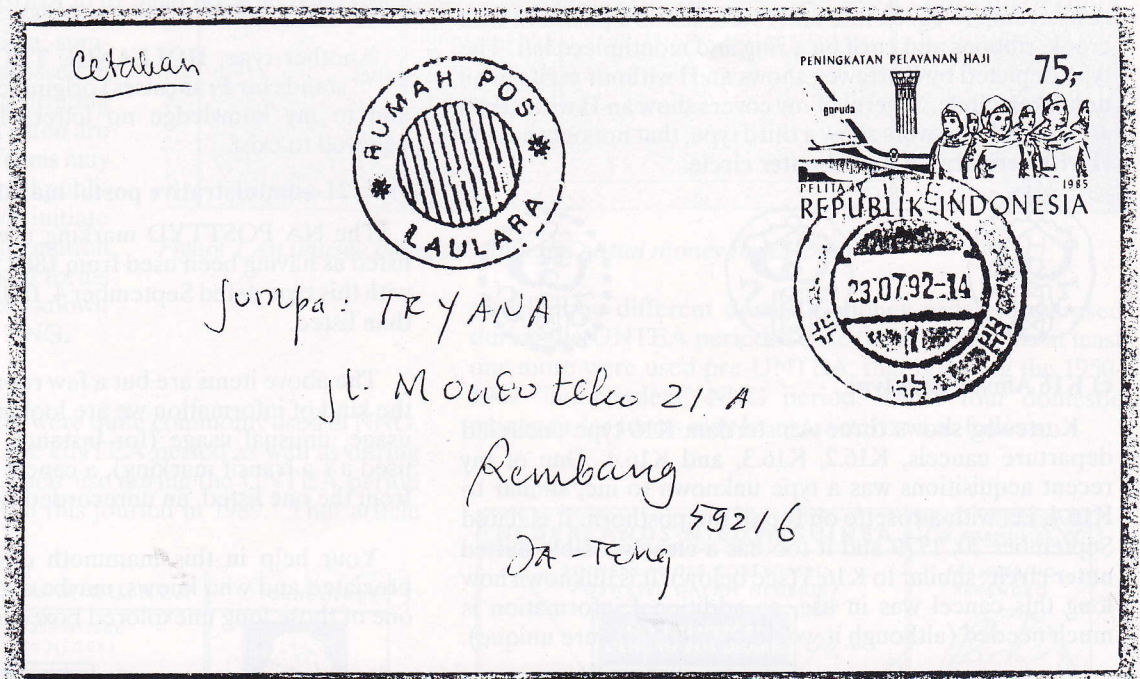 Cetakan
RUMAH POS
LAULARA
PENINGKATAN PELAYANAN HAJI
75,-
Garuda
PELITA
1985
REPUBLIK INDONESIA
23.07.92-14
Jumpa. TRYANA
Jl
21A
Rembang
59216
JA-Teng